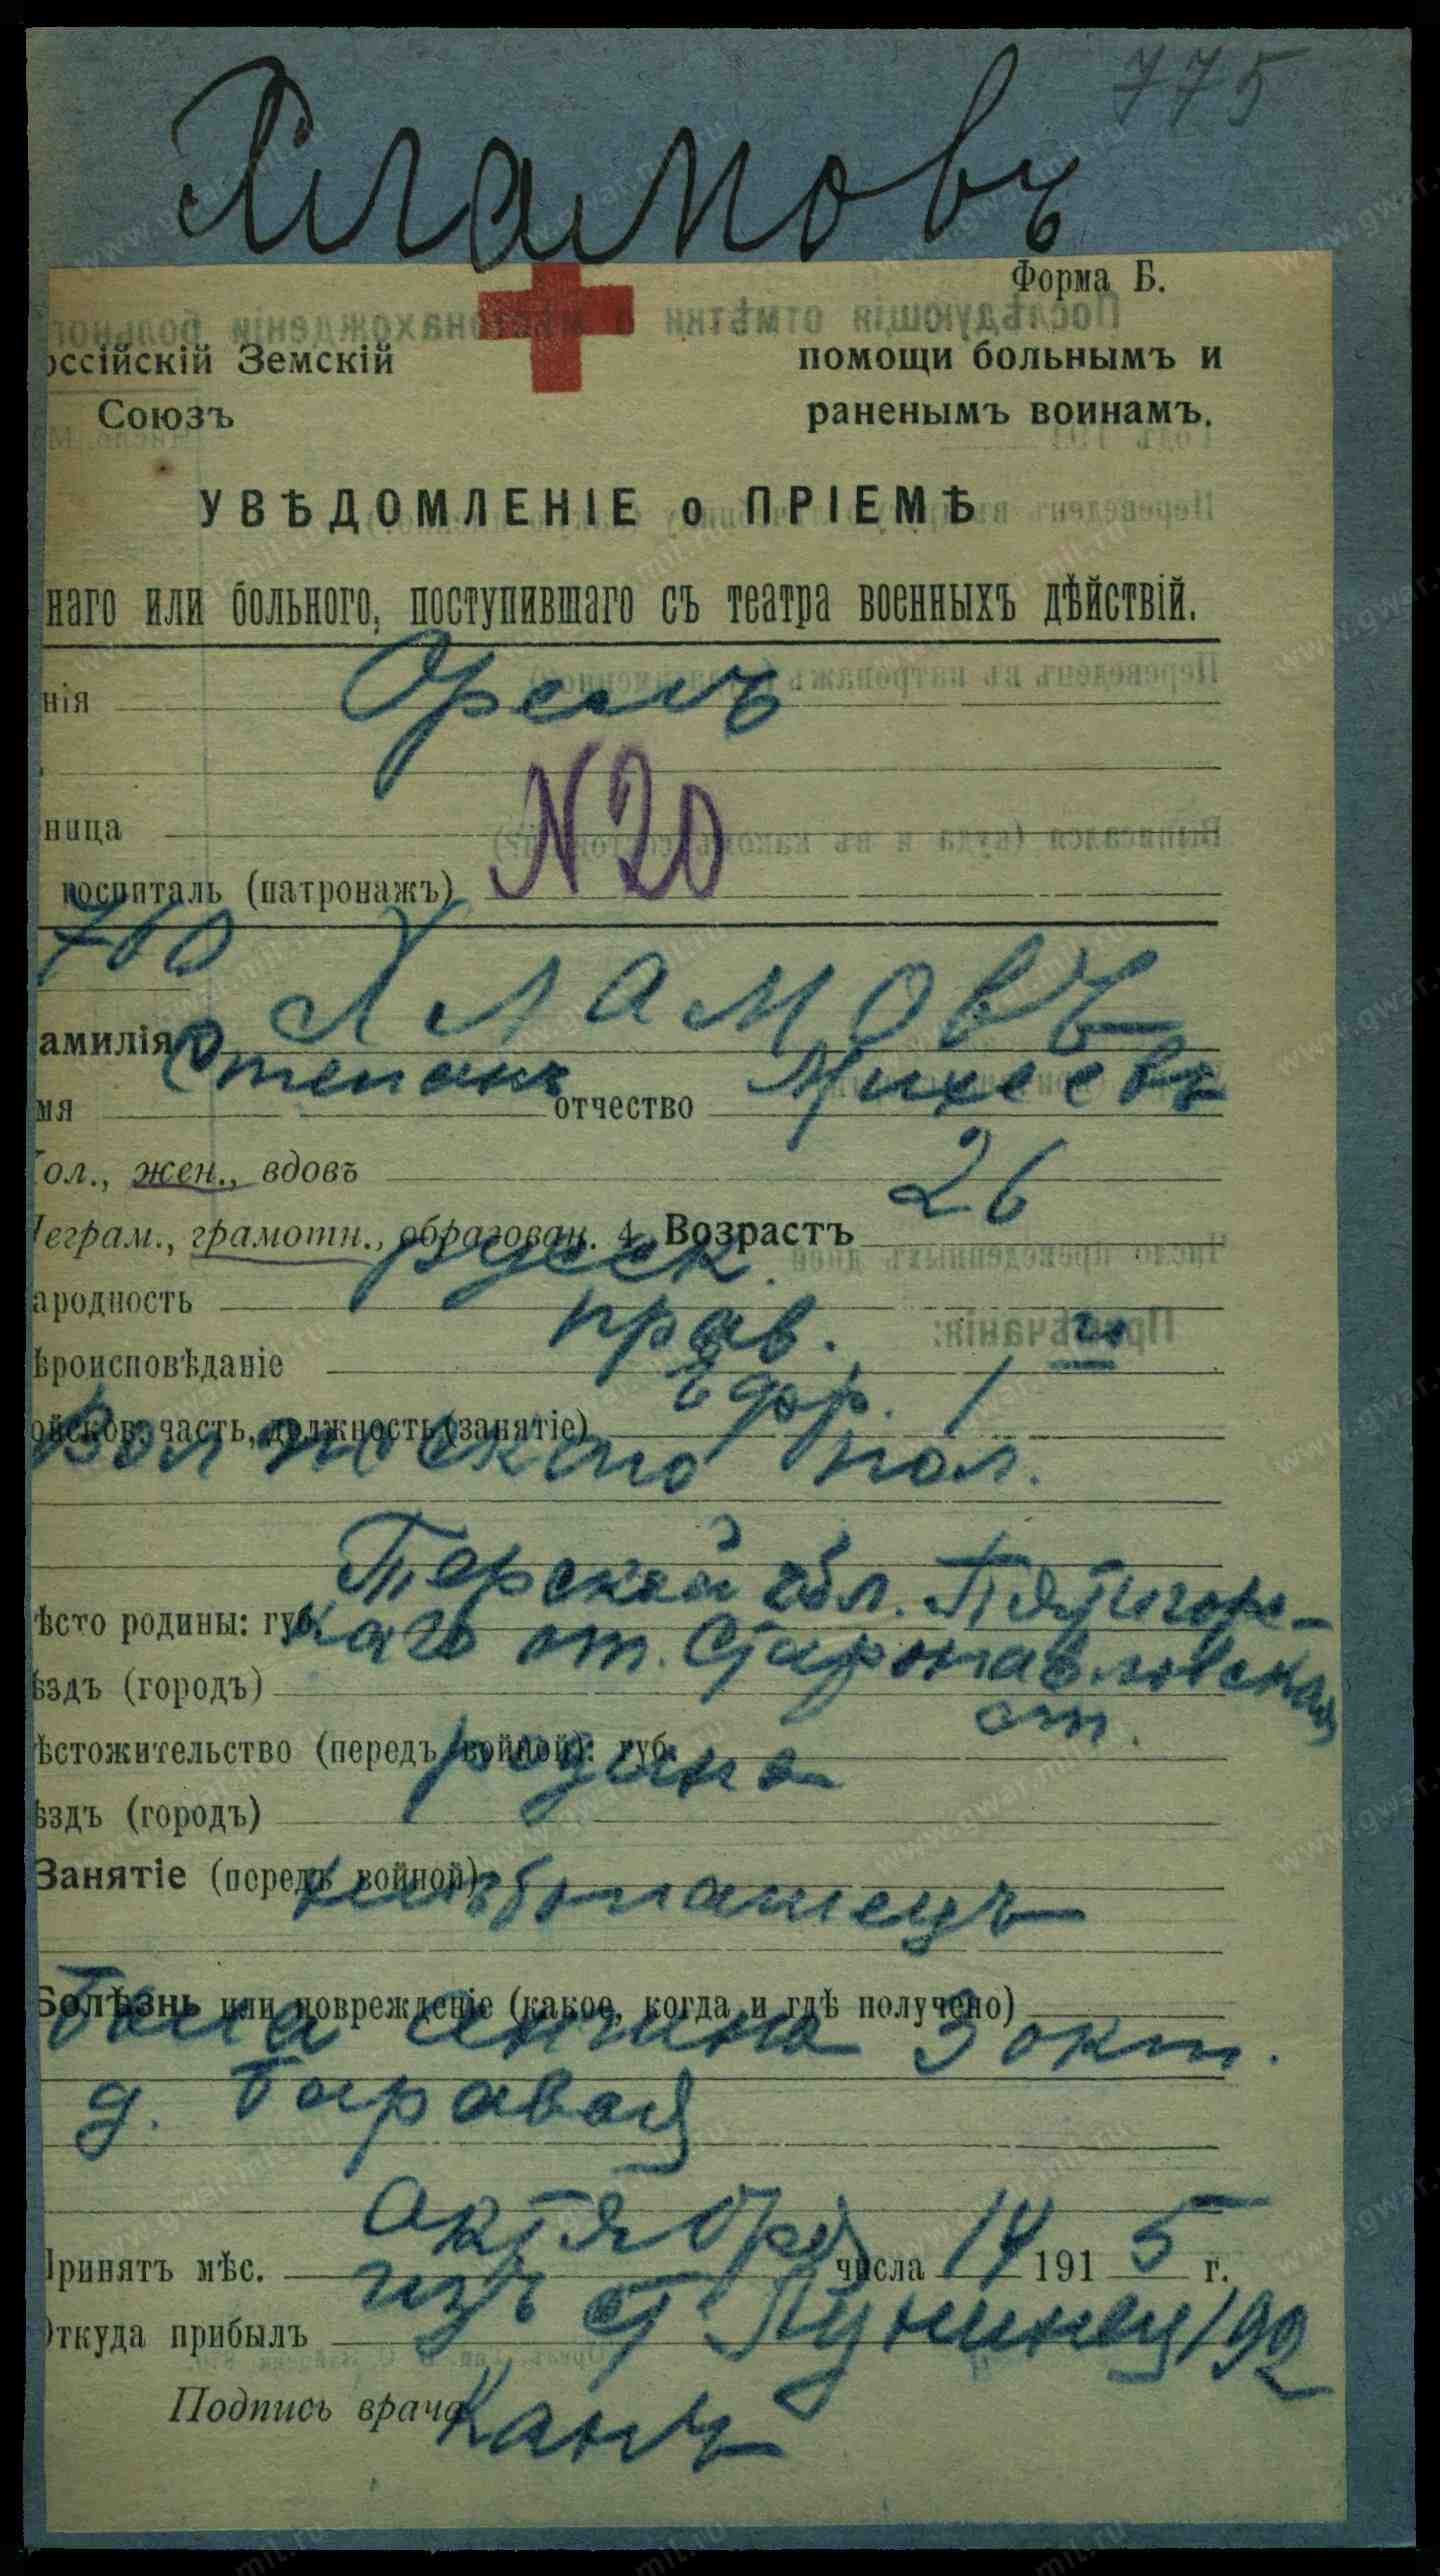 775
Хламовъ
Форма Б.
оссійскій Земскій
Союзъ
помощи больнымъ и
раненымъ воинамъ.
УВѢДОМЛЕНІЕ о ПРІЕМѢ
наго или больного, поступившаго съ театра военныхъ дѣйствій.
нія Орелъ
ница
госпиталь (патронажъ) N20
760
амилія Хламовъ
мя Степанъ отчество Михеевъ
ол., жен., вдовъ
еграм., грамотн., образован. 4. Возрастъ 26
ародность русск.
ѣроисповѣданіе прав.
ойсков. часть, должность (занятіе) ефр. 1го
Волжскаго пол.
ѣсто родины: губ. Терской обл. Пятигорс-
каго от. Старопавловская
ѣздъ (городъ) ст.
ѣстожительство (передъ войной): губ. родина
ѣздъ (городъ)
Занятіе (передъ войной) хлѣбопашецъ
Болѣзнь или поврежденіе (какое, когда и гдѣ получено)
была ангина 3 окт.
д. Боровая
Принятъ мѣс. октября числа 14 1915 г.
Откуда прибылъ изъ ст Лунинец 192
Подпись врача Канъ